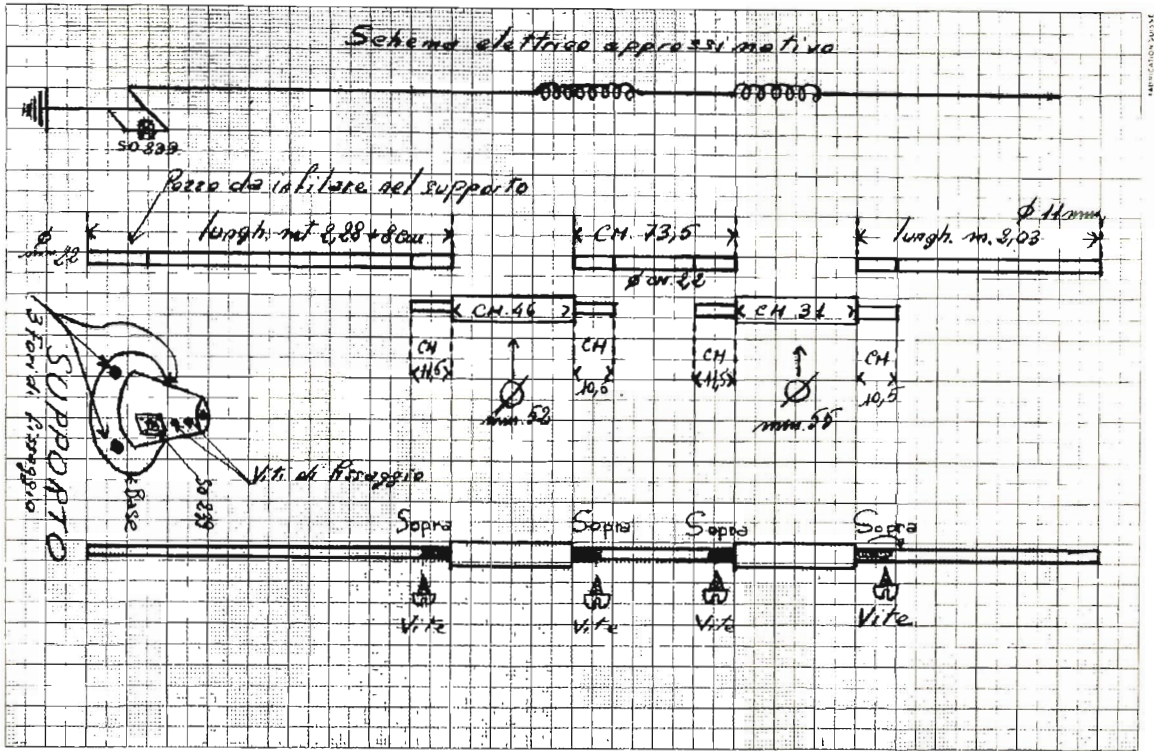 Schema elettrico approssimativo
SO 239
Pezzo da infilare nel supporto
lungh. mt 2,28 + 8 cm
CM. 73,5
ø 11 mm
lungh. m. 2,03
ø CM. 2,2
CM. 46
CM. 31
CM
11,5
CM
10,5
CM
11,5
CM
10,5
Ø
mm. 52
Ø
mm. 55
SUPPORTO
3 Fori di fissaggio
Base
SO 239
Viti di fissaggio
Sopra
Sopra
Sopra
Sopra
Vite
Vite
Vite
Vite